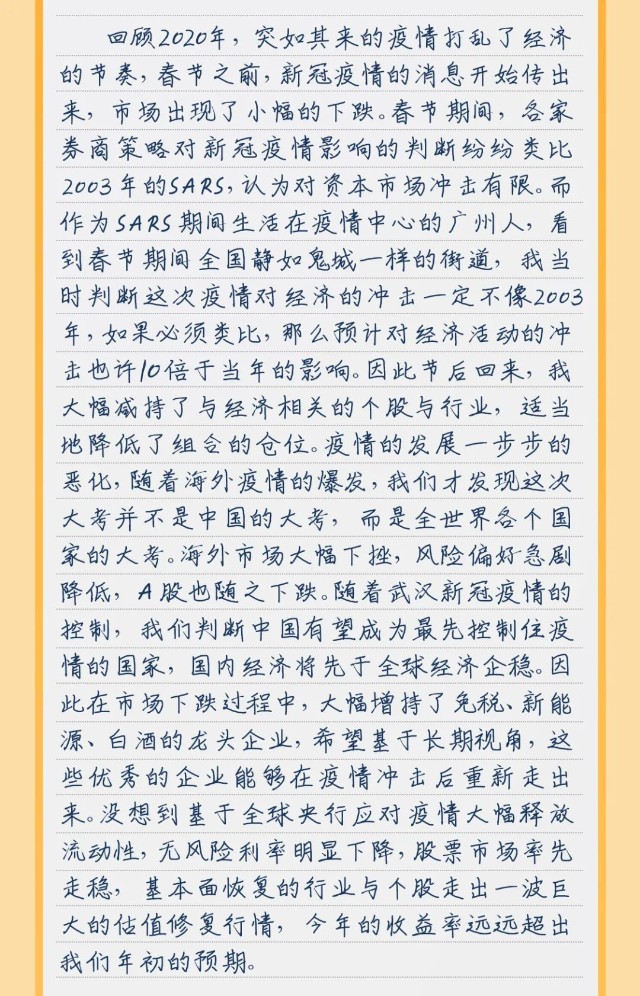 回顾2020年，突如其来的疫情打乱了经济
的节奏，春节之前，新冠疫情的消息开始传出
来，市场出现了小幅的下跌。春节期间，各家
券商策略对新冠疫情影响的判断纷纷类比
2003年的SARS，认为对资本市场冲击有限。而
作为SARS期间生活在疫情中心的广州人，看
到春节期间全国静如鬼城一样的街道，我当
时判断这次疫情对经济的冲击一定不像2003
年，如果必须类比，那么预计对经济活动的冲
击也许10倍于当年的影响。因此节后回来，我
大幅减持了与经济相关的个股与行业，适当
地降低了组合的仓位。疫情的发展一步步的
恶化，随着海外疫情的爆发，我们才发现这次
大考并不是中国的大考，而是全世界各个国
家的大考。海外市场大幅下挫，风险偏好急剧
降低，A股也随之下跌。随着武汉新冠疫情的
控制，我们判断中国有望成为最先控制住疫
情的国家，国内经济将先于全球经济企稳。因
此在市场下跌过程中，大幅增持了免税、新能
源、白酒的龙头企业，希望基于长期视角，这
些优秀的企业能够在疫情冲击后重新走出
来。没想到基于全球央行应对疫情大幅释放
流动性，无风险利率明显下降，股票市场率先
走稳，基本面恢复的行业与个股走出一波巨
大的估值修复行情，今年的收益率远远超出
我们年初的预期。